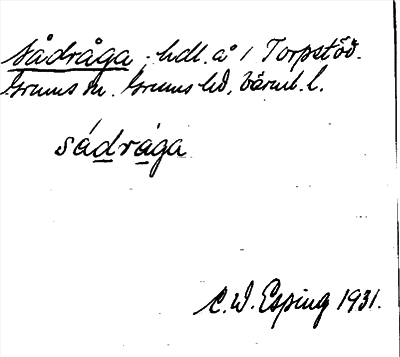 Sådråga. hdl. å 1 Torpstöð.
Grums sn. Grums hd, Värml. l.
sádrága
C. W. Esping 1931.